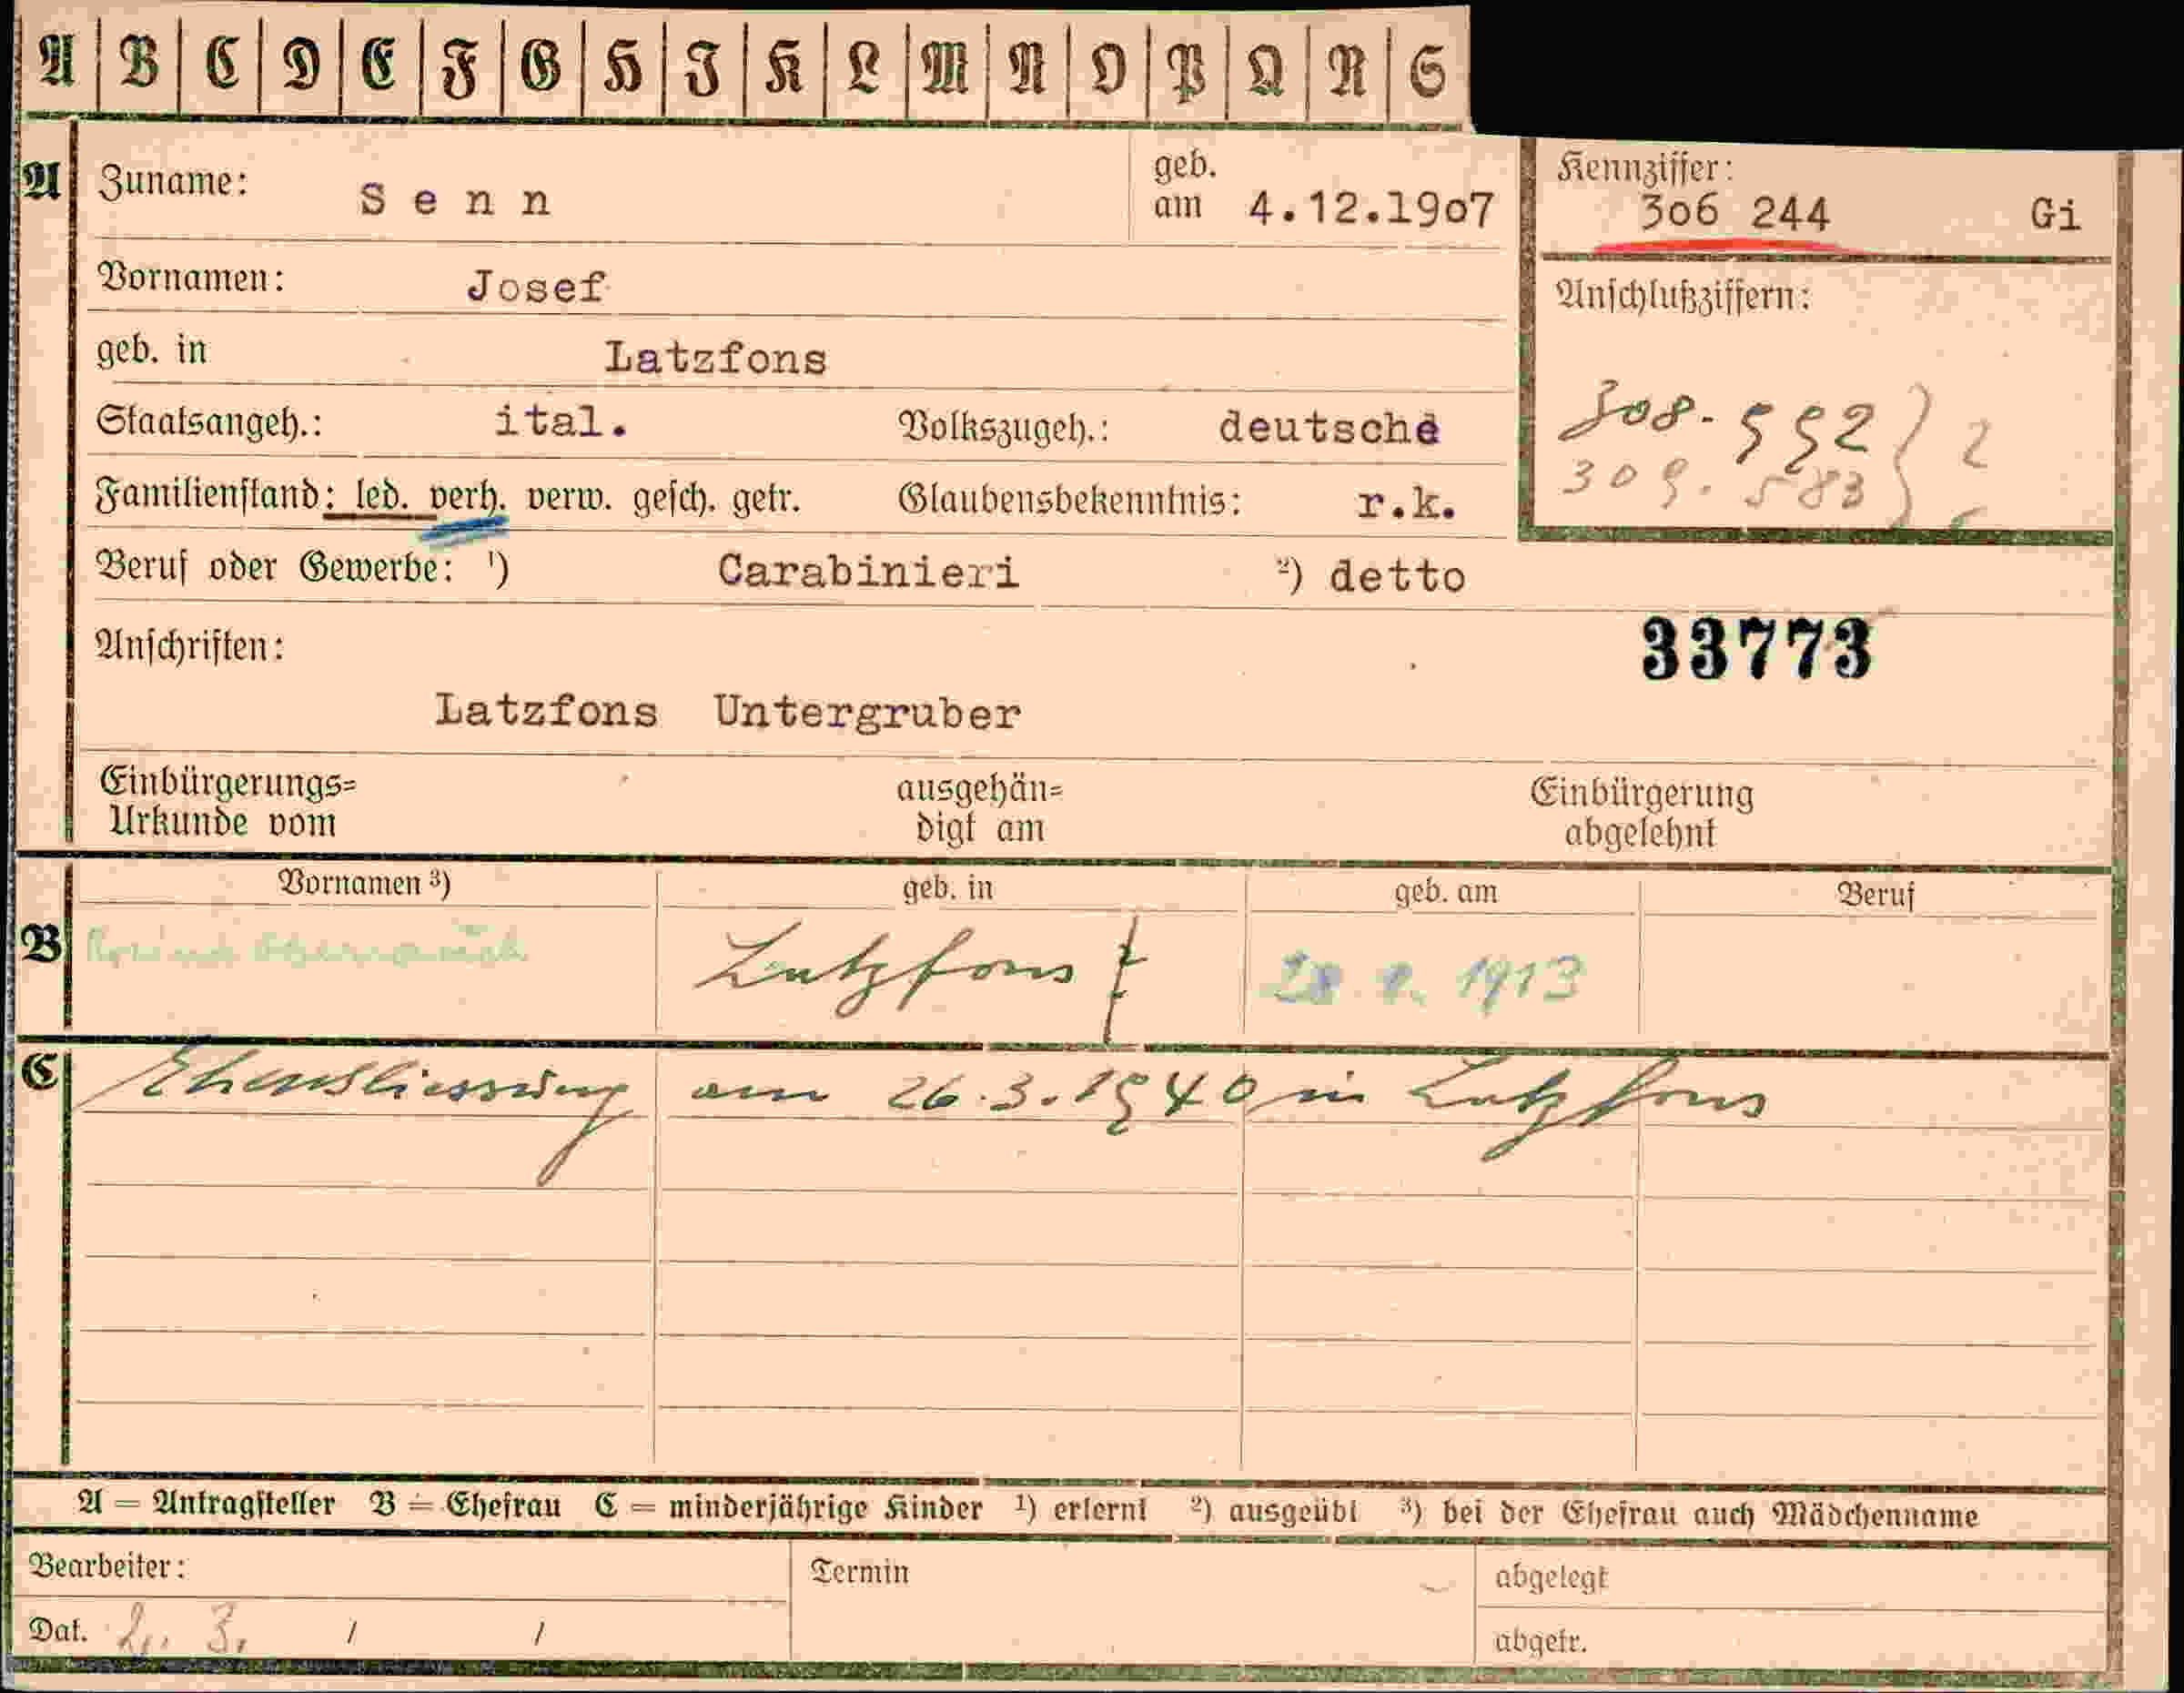 A B C D E F G H I K L M N O P Q R S
A Zuname: Senn geb. am 4.12.19o7
Kennziffer: 3o6 244 Gi
Vornamen: Josef
Anschlußziffern:
geb. in Latzfons
308. 552 } 2
309. 583
Staatsangeh.: ital. Volkszugeh.: deutsche
Familienstand: led. verh. verw. gesch. getr. Glaubensbekenntnis: r.k.
Beruf oder Gewerbe: ¹) Carabinieri ²) detto
Anschriften: 33773
Latzfons Untergruber
Einbürgerungs=
Urkunde vom
ausgehän=
digt am
Einbürgerung
abgelehnt
Vornamen ³) geb. in geb. am Beruf
B Latzfons 1913
C Ehenschliessung am 26.3.1940 in Latzfons
A = Antragsteller B = Ehefrau C = minderjährige Kinder ¹) erlernt ²) ausgeübt ³) bei der Ehefrau auch Mädchenname
Bearbeiter: Termin abgelegt
Dat. 2. 3. / / abgetr.